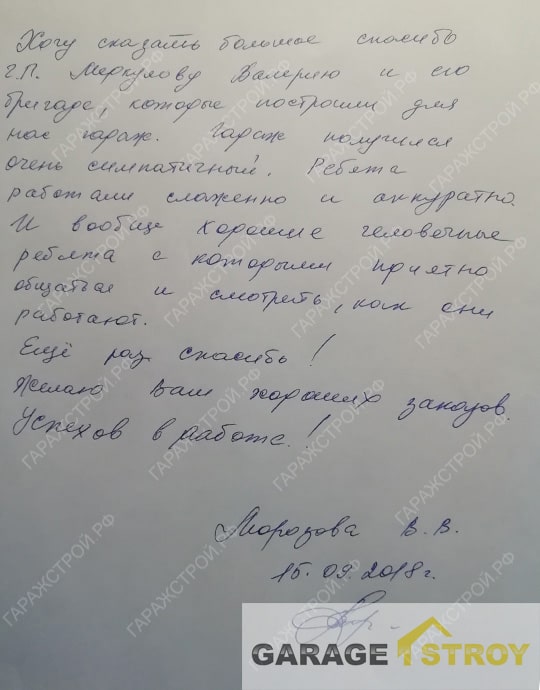 Хочу сказать большое спасибо
г.П. Меркулову Валерию и его
бригаде, которые построили для
нас гараж. Гараж получился
очень симпатичный. Ребята
работали слаженно и аккуратно.
И вообще хорошие человечные
ребята с которыми приятно
общаться и смотреть, как они
работают.
Ещё раз спасибо!
Желаю Вам хороших заказов.
Успехов в работе!
Морозова В.В.
15.09.2018г.
GARAGE STROY
ГАРАЖСТРОЙ.РФ